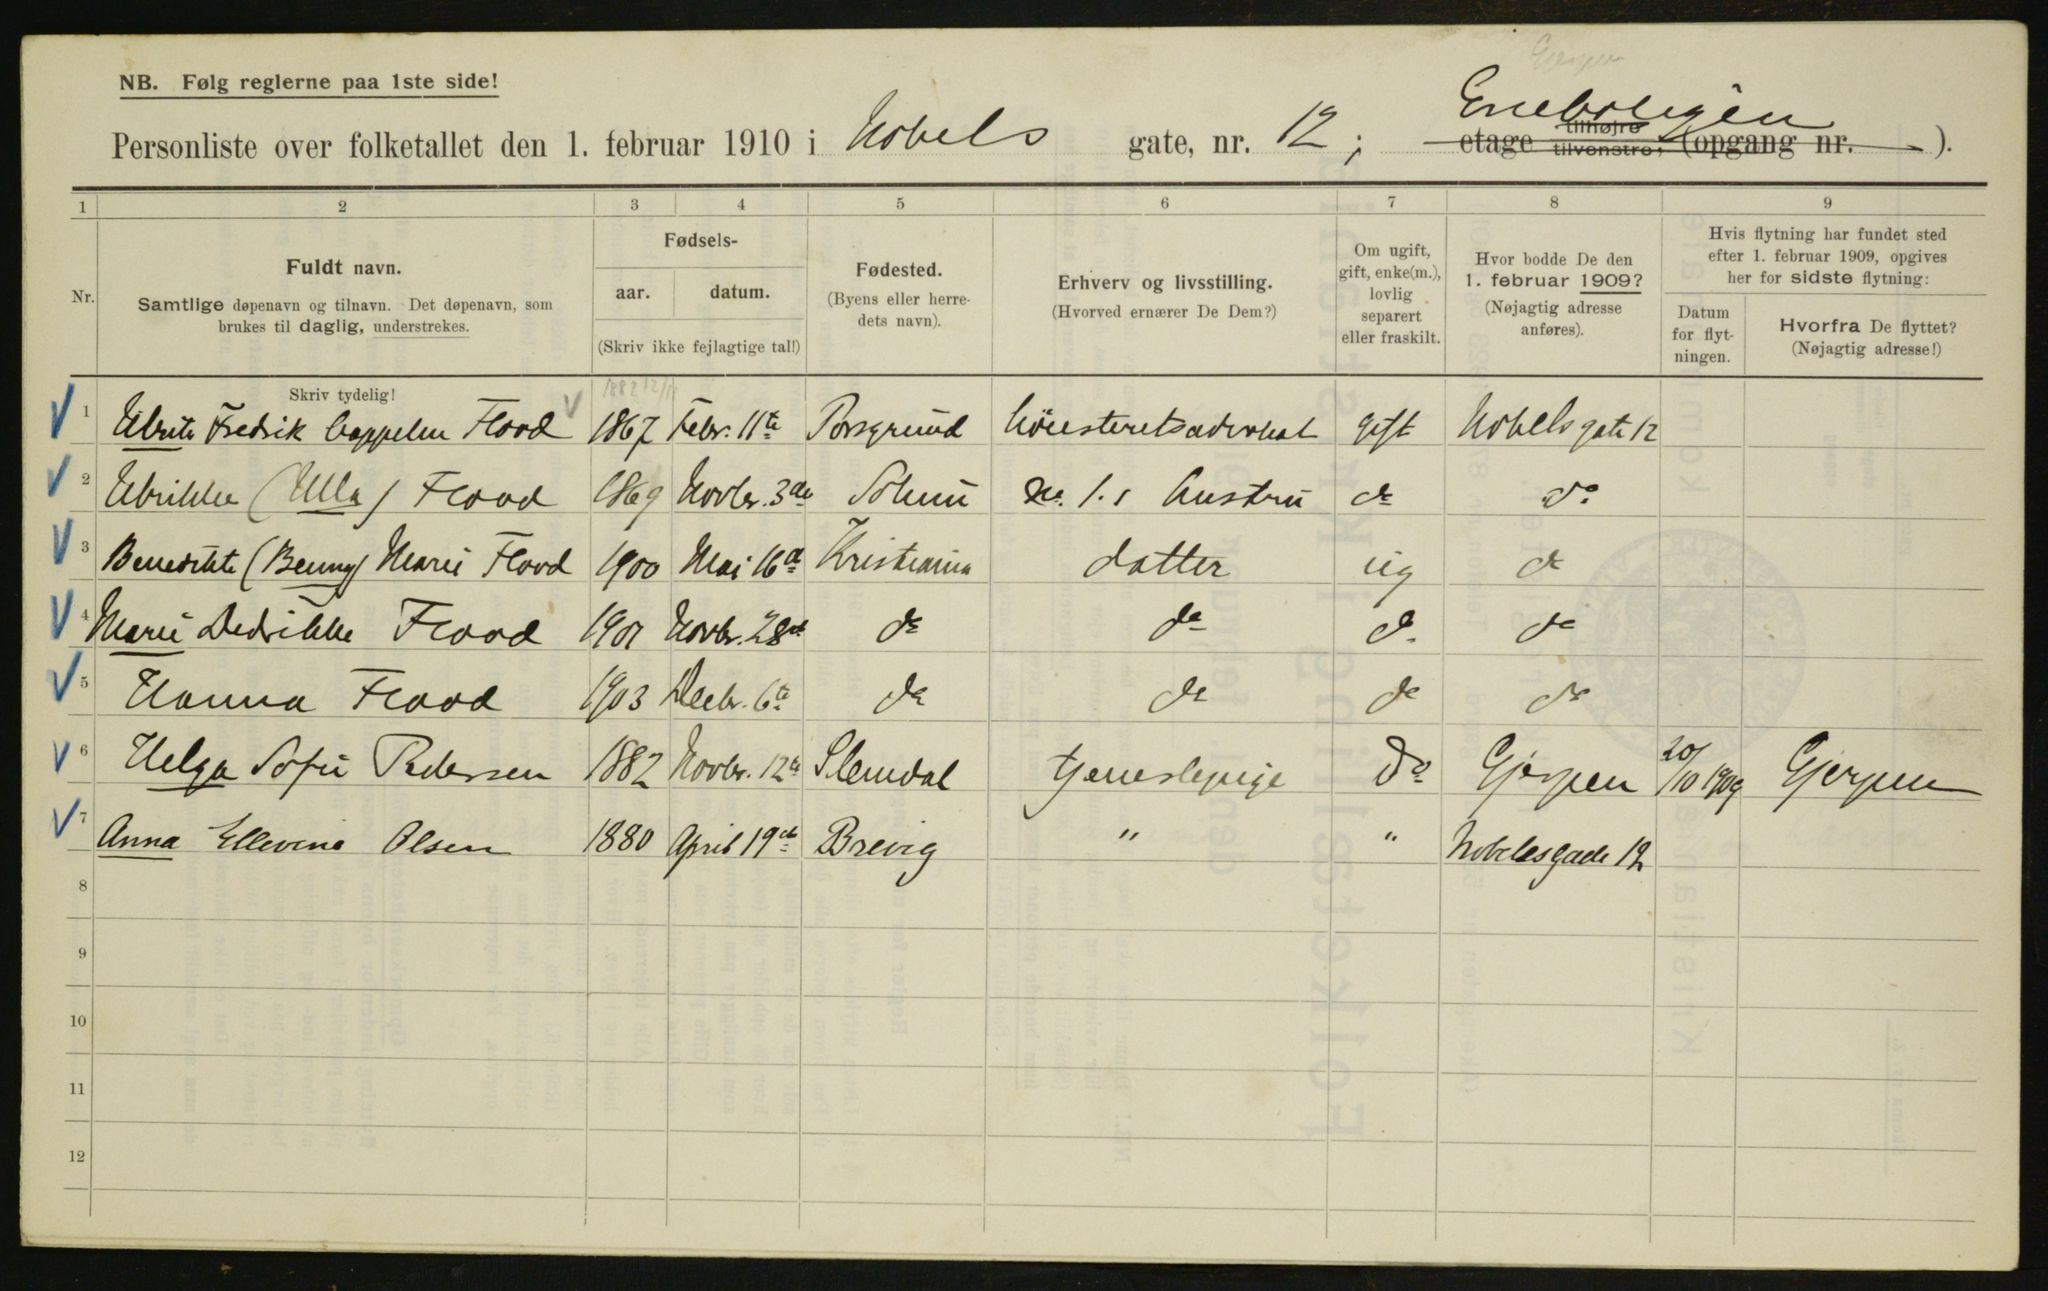 NB. Følg reglerne paa 1ste side!
Gjerpen
Personliste over folketallet den 1. februar 1910 i Nobels gate, nr. 12; Eneboligen etage tilhøjre tilvenstre, (opgang nr. ).
1 2 3 4 5 6 7 8 9
Nr.
Fuldt navn.
Samtlige døpenavn og tilnavn. Det døpenavn, som
brukes til daglig, understrekes.
Fødsels-
aar. datum.
(Skriv ikke fejlagtige tal!)
Fødested.
(Byens eller herre-
dets navn).
Erhverv og livsstilling.
(Hvorved ernærer De Dem?)
Om ugift,
gift, enke(m.),
lovlig
separert
eller fraskilt.
Hvor bodde De den
1. februar 1909?
(Nøjagtig adresse
anføres).
Hvis flytning har fundet sted
efter 1. februar 1909, opgives
her for sidste flytning:
Datum
for flyt-
ningen.
Hvorfra De flyttet?
(Nøjagtig adresse!)
Skriv tydelig!
1882 12/11
1 Fredrik Cappelen Flood 1867 Febr. 11te Porsgrund Höiesteretsadvokat gift Nobelsgate 12
2 Ulrikke (Ulla) Flood 1869 Novbr. 3de Solum Hustru do do
3 Benedikte (Benny) Marie Flood 1900 Mai 16d Kristiania datter ug do
4 Marie Dedrikke Flood 1901 Novbr. 28de do do do do
5 Hanna Flood 1903 Decbr. 6te do do do do
6 Helga Sofie Pedersen 1882 Novbr. 12te Slemdal tjenestepige Do Gjerpen 20/10 1909 Gjerpen
7 Anna Ellevine Olsen 1880 April 19de Brevig " " Nobelsgade 12
8
9
10
11
12